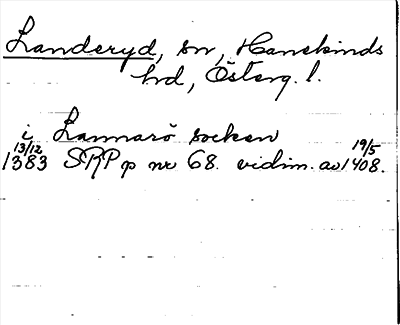 Landeryd, sn, Hanekinds
hd, Österg. l.
i Lannarö socken
13/12 1383 SRP p nr 68. vidim. av 19/5 1408.